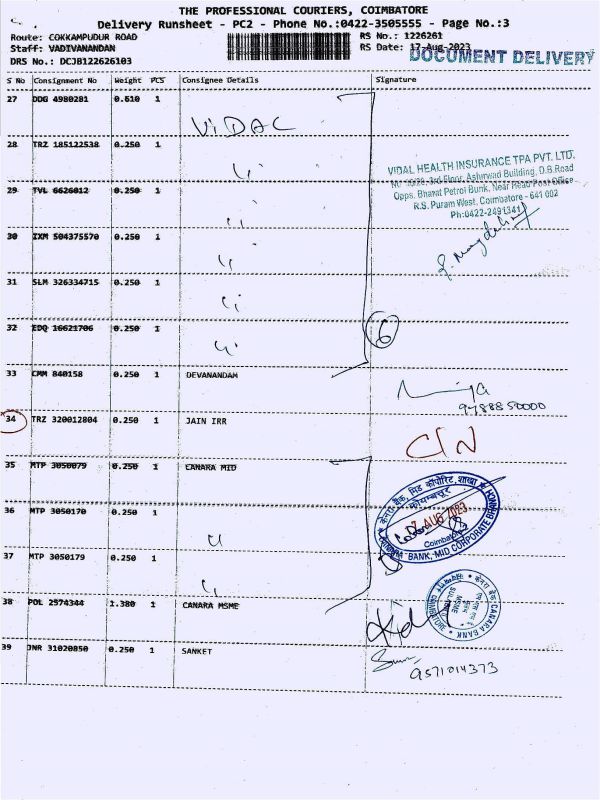 THE PROFESSIONAL COURIERS, COIMBATORE
Delivery Runsheet - PC2 - Phone No.:0422-3505555 - Page No.:3
Route: COKKAMPUDUR ROAD RS No.: 1226261
Staff: VADIVANANDAN RS Date: 17-Aug-2023
DOCUMENT DELIVERY
DRS No.: DCJB122626103
S No Consignment No Weight PCS Consignee Details Signature
27 DDG 4980281 0.610 1 ViDAL
28 TRZ 185122538 0.250 1
VIDAL HEALTH INSURANCE TPA PVT. LTD.
No 10/28, 3rd Floor, Ashirwad Building, D.B.Road
Opps. Bharat Petrol Bunk, Near Head Post Office
R.S. Puram West, Coimbatore - 641 002
Ph:0422-2491341
29 TVL 6626012 0.250 1
30 IXM 504375570 0.250 1
31 SLM 326334715 0.250 1
32 EDQ 16621706 0.250 1
6
33 CMM 840158 0.250 1 DEVANANDAM
9488850000
34 TRZ 320012804 0.250 1 JAIN IRR
C/N
35 MTP 3050079 0.250 1 CANARA MID
केनरा बैंक, मिड कॉर्पोरेट शाखा
कोयम्बत्तूर
AUG 2023
Coimbatore
CANARA BANK, MID CORPORATE BRANCH
36 MTP 3050170 0.250 1
37 MTP 3050179 0.250 1
38 POL 2574344 1.380 1 CANARA MSME
केनरा बैंक
MSME
CANARA BANK
39 JNR 31020850 0.250 1 SANKET
9571014373